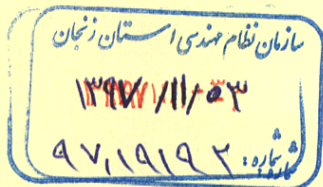 سازمان نظام مهندسی استان زنجان
۱۳۹۷/۱۱/۰۳
شماره: ۹۷,۱۹۱۹۲